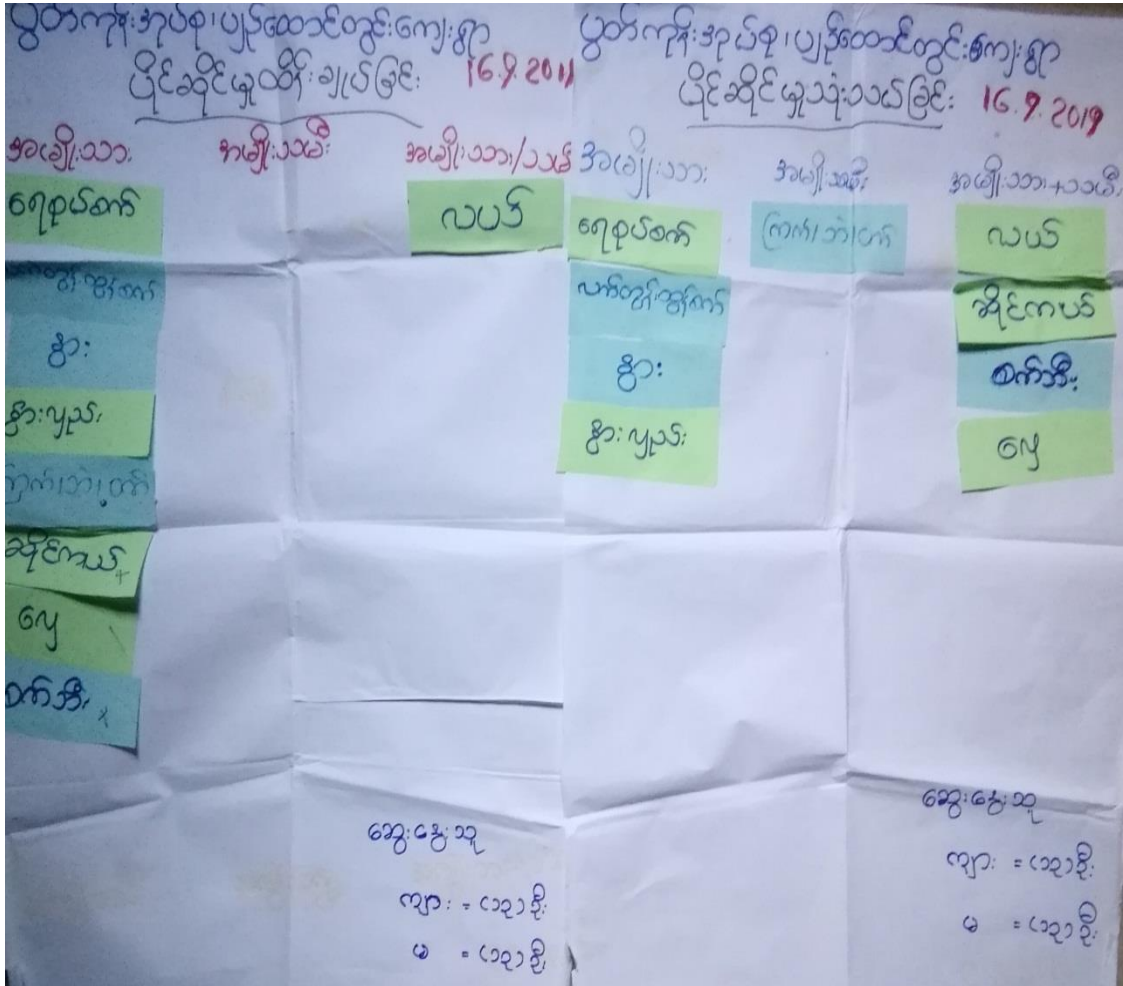 ပွတ်ကုန်းအုပ်စု၊ပျဉ်ထောင်တွင်းကျေးရွာ
ပိုင်ဆိုင်မှုထိန်းချုပ်ခြင်း 16.9.2019
အမျိုးသား အမျိုးသမီး အမျိုးသား/သမီး
ရေစုပ်စက် လယ်
လက်တွန်းထွန်စက်
နွား
နွားလှည်း
ကြက်၊ဘဲ၊ဝက်
ဆိုင်ကယ်
လှေ
စက်ဘီး
ဆွေးနွေးသူ
ကျား = (၁၃)ဦး
မ = (၁၃)ဦး
ပွတ်ကုန်းအုပ်စု၊ပျဉ်ထောင်တွင်းကျေးရွာ
ပိုင်ဆိုင်မှုသုံးသပ်ခြင်း 16.9.2019
အမျိုးသား အမျိုးသမီး အမျိုးသား+သမီး
ရေစုပ်စက် ကြက်၊ဘဲ၊ဝက် လယ်
လက်တွန်းထွန်စက် ဆိုင်ကယ်
နွား စက်ဘီး
နွားလှည်း လှေ
ဆွေးနွေးသူ
ကျား = (၁၃)ဦး
မ = (၁၃)ဦး